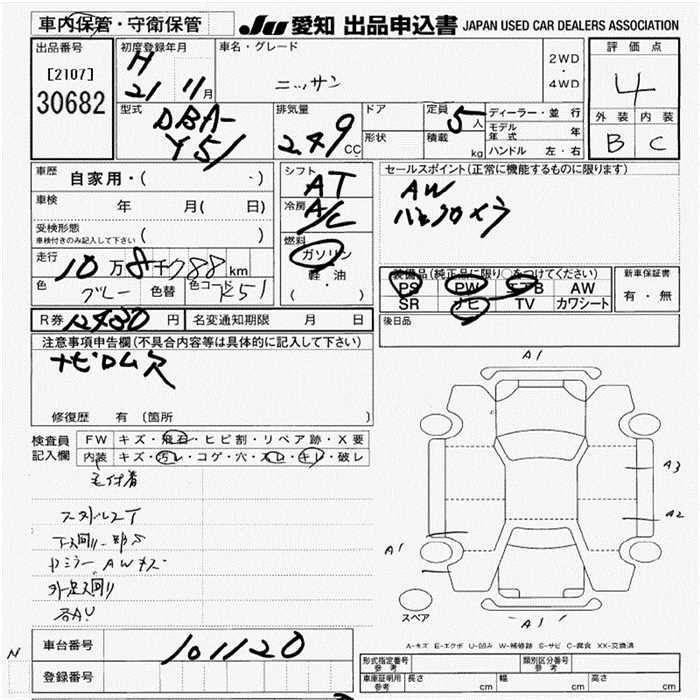 車内保管・守衛保管
JU 愛知 出品申込書 JAPAN USED CAR DEALERS ASSOCIATION
出品番号 初度登録年月 車名・グレード 評価点
[2107] H 2WD
30682 21 11月 ニッサン ・ 4
4WD
型式 排気量 ドア 定員 5人 ディーラー・並行 外装 内装
DBA- 249CC 形状 積載 kg モデル年式 年 B C
Y51 ハンドル 左・右
車歴 自家用・( ・) シフト AT セールスポイント(正常に機能するものに限ります)
車検 年 月( 日) 冷房 A/C AW
受検形態 ( )
車検付きのみ記入して下さい
走行 10万8千788km 燃料 ガソリン 装備品(純正品に限り○をつけてください) 新車保証書
色 グレー 色替 色コード K51 軽油 PS PW エアB AW 有・無
( ・ ) SR ナビ TV カワシート
R券 12430円 名変通知期限 月 日 後日品
注意事項申告欄(不具合内容等は具体的に記入して下さい)
ナビロム欠
修復歴 有 (箇所
検査員 FW キズ・飛石・ヒビ割・リペア跡・X要
記入欄 内装 キズ・汚レ・コゲ・穴・スレ・キレ・破レ
A1
A3
A2
A1
スペア
A1
A-キズ E-エクボ U-凹み W-補修跡 S-サビ C-腐食 XX-交換済
車台番号 101120
N
登録番号
形式指定番号 参考 類別区分番号 参考
車庫証明用 参考 長さ cm 幅 cm 高さ cm